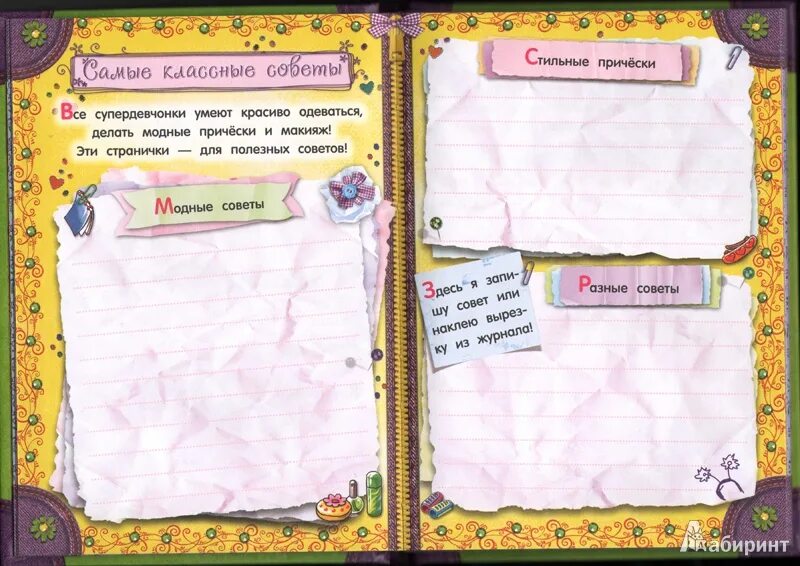 Самые классные советы
Все супердевчонки умеют красиво одеваться,
делать модные причёски и макияж!
Эти странички — для полезных советов!
Модные советы
Стильные причёски
Здесь я запи-
шу совет или
наклею вырез-
ку из журнала!
Разные советы
Лабиринт